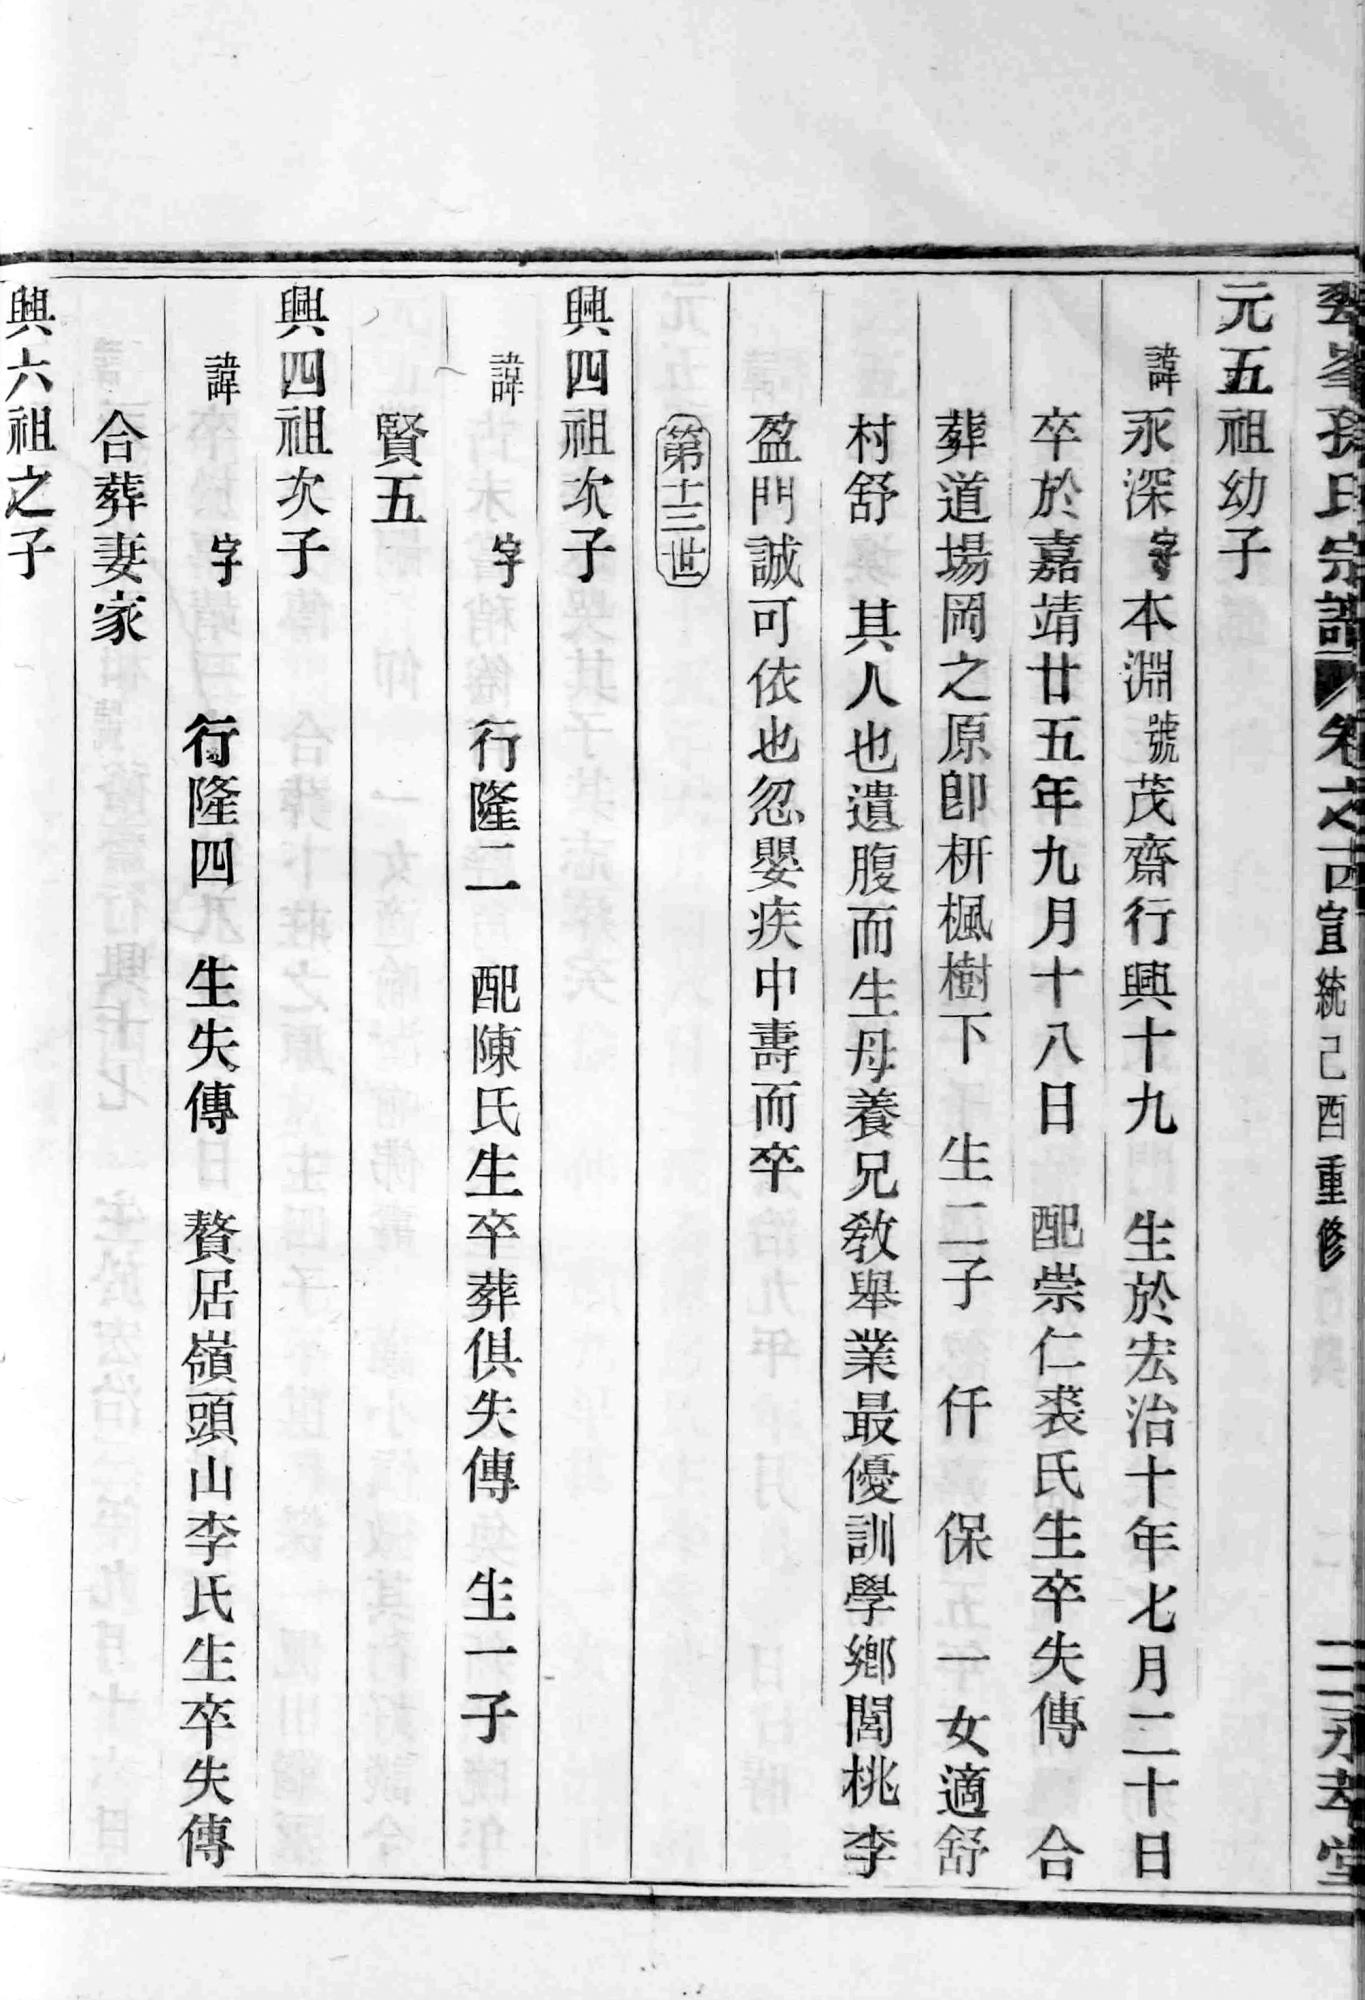 孫氏宗譜 卷之四 宣統己酉重修 二 永孝堂
元五祖幼子
諱永深字本淵號茂齋行興十九 生於宏治十年七月二十日
卒於嘉靖廿五年九月十八日 配崇仁裘氏生卒失傳 合
葬道場岡之原卽枬楓樹下 生二子 仟 保 一女適舒
村舒 其人也遺腹而生母養兄敎舉業最優訓學鄉閭桃李
盈門誠可依也忽嬰疾中壽而卒
第十三世
興四祖次子
諱 字 行隆二 配陳氏生卒葬俱失傳 生一子
賢五
興四祖次子
諱 字 行隆四 生失傳 贅居嶺頭山李氏生卒失傳
合葬妻家
興六祖之子